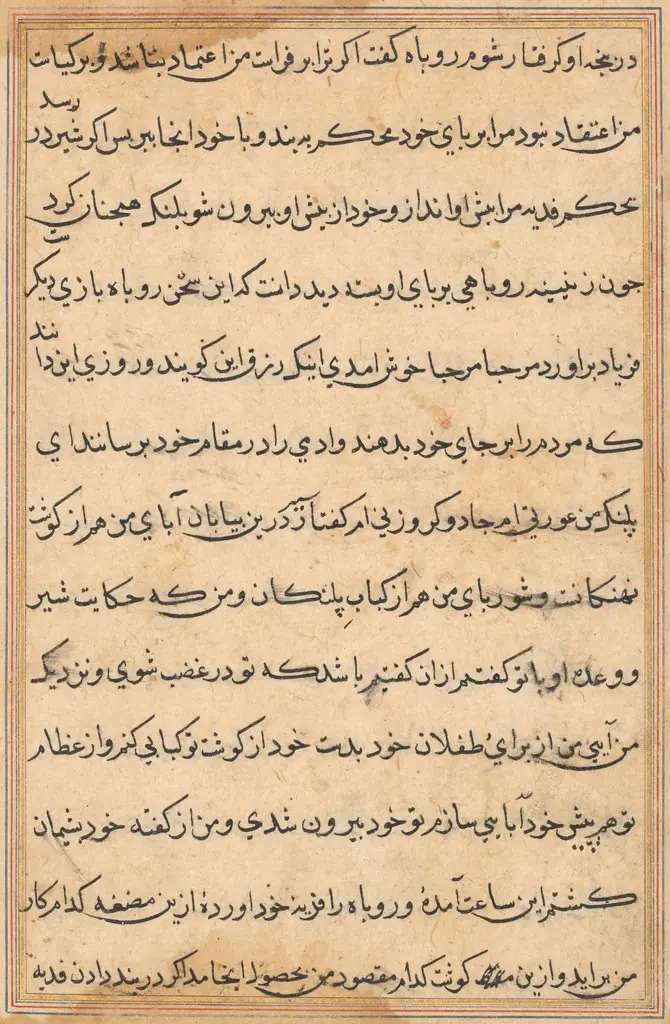 در پنجه او گرفتار شوم روباه گفت اگر ترا بر فراست من اعتماد بناشد و بر کیاست
من اعتقاد نبود مرا بر پای خود محکم به بند و با خود انجا ببر پس اگر شیر در رسد
بحکم فدیه مرا پیش او انداز و خود از پیش او بیرون شو پلنک همچنان کرد
چون ز نینه روباهی بر پای او بسته دید دانست که این سخن روباه بازی دیکر
فریاد براورد مرحبا مرحبا خوش امدی اینک رزق این کویند و روزی این دانند
که مردم را بر جای خود بدهند و ادی را در مقام خود برسانند ای
پلنک من عورتی ام جادو کر و زنی ام کفتار درین بیابان آبای من هم از کوشت
نهنکانست و شوربای من هم از کباب پلنکان و من که حکایت شیر
و وعده او با تو کفتم ازان کفتم باشد که تو در غضب شوی و نزدیک
من آیی من از برای طفلان خود بدست خود از کوشت تو کبابی کنم و از عظام
تو هم پیش خود آبایی سازم تو خود بیرون شدی و من از کفته خود پشیمان
کشتم این ساعت آمدهٔ و روباه را فریه خود اوردهٔ ازین مضغه کدام کار
من براید و ازین کوشت کدام مقصود من بحصول انجامد اکر در بند دادن فدیه